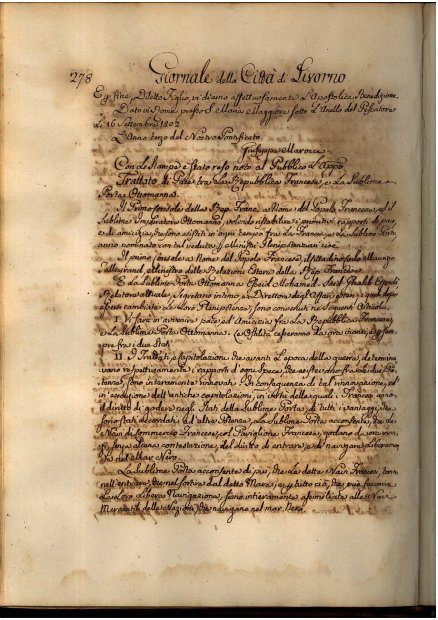 278 Giornale della Città di Livorno
E p. fine, Diletto Figlio, vi diamo affettuosamente l'Apostolica Benedizione.
Dato in Roma presso S. Maria Maggiore sotto l'Anello del Pescatore
Li 16 Settembre 1802
L'Anno terzo del Nostro Pontificato.
Giuseppe Marocco
Con le Stampe è stato reso noto al Pubblico l'
Trattato di Pace tra la Repubblica Francese, e la Sublime
Porta Ottomanna.
Il Primo Console della Rep. Franc. a Nome del Popolo Francese, ed il
Sublime Imperatore Ottomanno, volendo ristabilire i primitivi rapporti di pace,
e di amicizia, che sono esistiti in ogni tempo fra la Francia, e la Sublime Porta
anno nominato con tal veduta, Ministri Plenipotenziari cioè:
Il primo Console a Nome del Popolo Francese, il Cittadino Carlo Maurizio
Talleyrand, Ministro delle Relazioni Estere della Rep. Francese
E la Sublime Porta Ottomanna Esseid Mohamed Said Ghalib Effendi
Relatore attuale, Segretario intimo, e Direttore degli Affari esteri, i quali dopo
aver cambiato le Loro Plenipotenze, sono convenuti ne' seguenti Articoli.
I. Vi sarà in avvenire pace, ed Amicizia fra la Repubblica Francese,
e la Sublime Porta Ottomanna. Le Ostilità cesseranno da ora innanzi, e sem-
pre fra i due Stati
II. I Trattati, e Capitolazioni, che avanti l'epoca della guerra, determina-
vano rispettivamente i rapporti d'ogni specie, che esistevano fra le due Po-
tenze, sono interamente rinnovati. In conseguenza di tal rinnovazione, ed
in esecuzione dell'antiche capitolazioni, in virtù delle quali i Francesi anno
il diritto di godere negli Stati della Sublime Porta, di tutti i vantaggi, che
sono stati accordati ad altre Potenze, la Sublime Porta acconsente, che le
Navi di Commercio Francese, col Paviglione Francese, godano da ora innan-
zi, senza alcuna contestazione, del diritto di entrare, e di navigare liberamen-
te nel Mar Nero.
La Sublime Porta acconsente di più, che le dette Navi Francesi, tanto
nell'entrare, che nel sortire dal detto Mare, e in tutto ciò, che può favorire
la loro libera Navigazione, siano interamente assimilate alle Navi
Mercantili delle Nazioni, che navigano nel mar Nero.